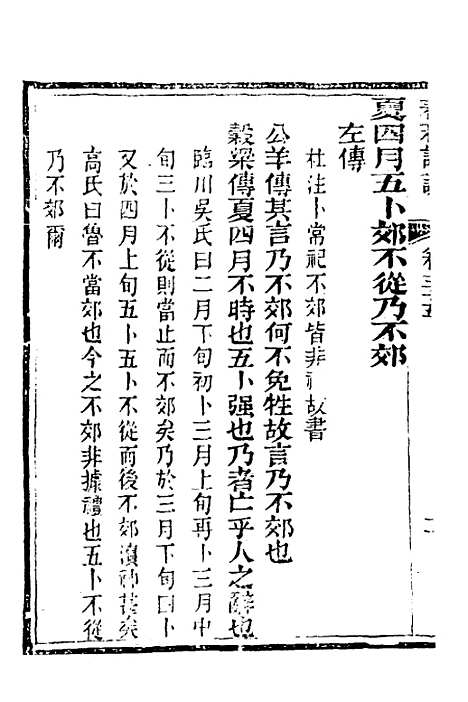 卷三五
夏四月五卜郊不從乃不郊
左傳
杜注卜常祀不郊皆非禮故書
公羊傳其言乃不郊何不免牲故言乃不郊也
穀梁傳夏四月不時也五卜强也乃者亡乎人之辭也
臨川吳氏曰二月下旬初卜三月上旬再卜三月中
旬三卜不從則當止而不郊矣乃於三月下旬四卜
又於四月上旬五卜五卜不從而後不郊瀆神甚矣
高氏曰魯不當郊也今之不郊非據禮也五卜不從
乃不郊爾